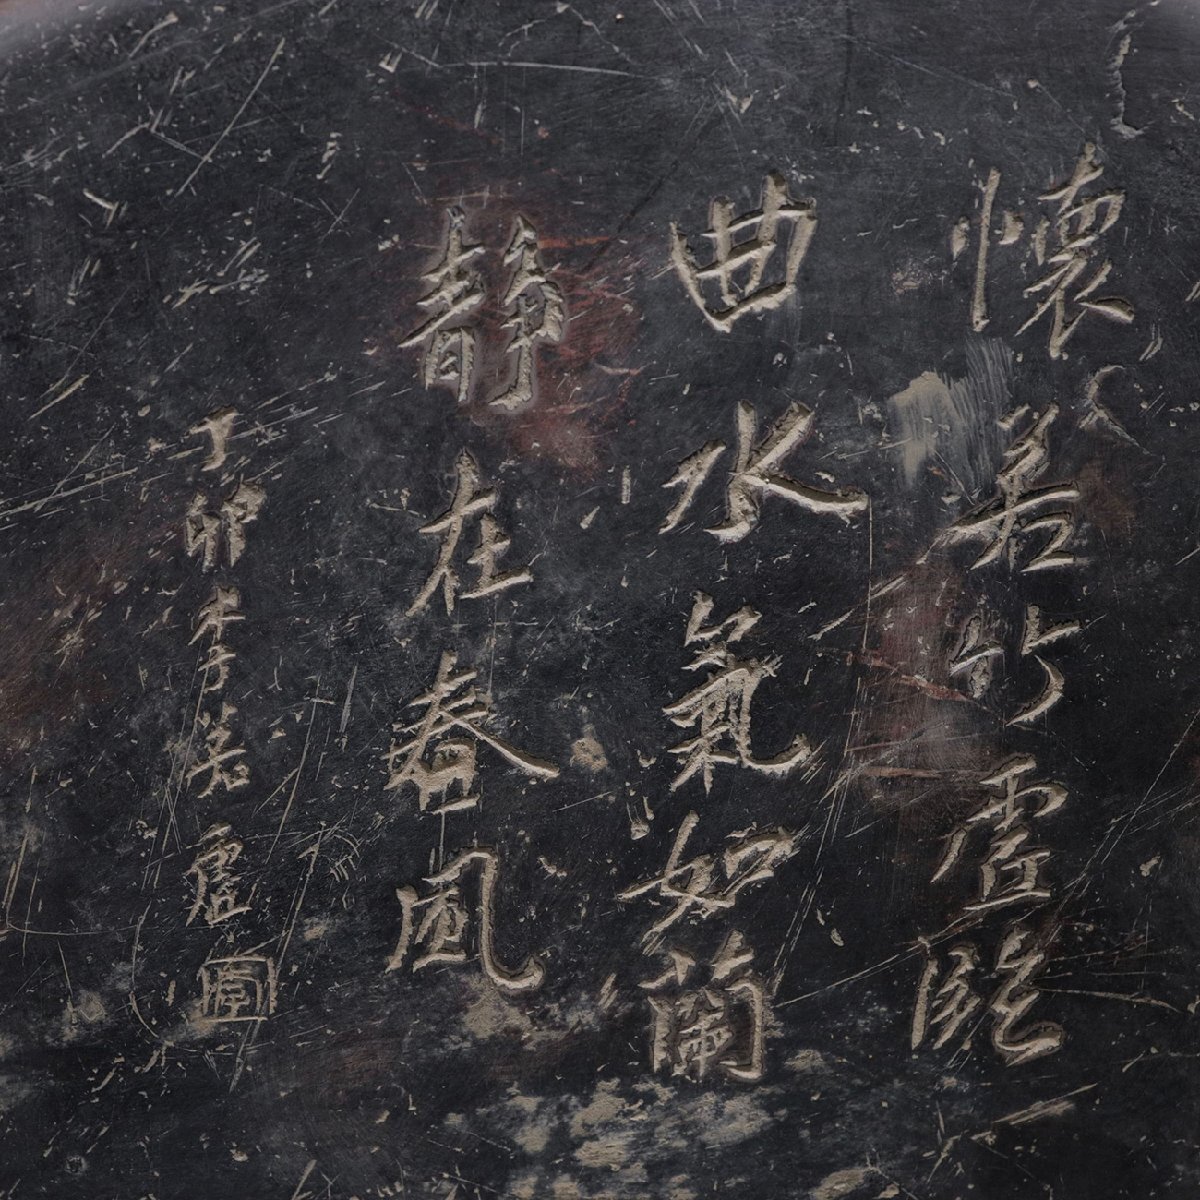 懷若竹虛臨
曲水氣如蘭
靜在春風
丁卯李若虛圖